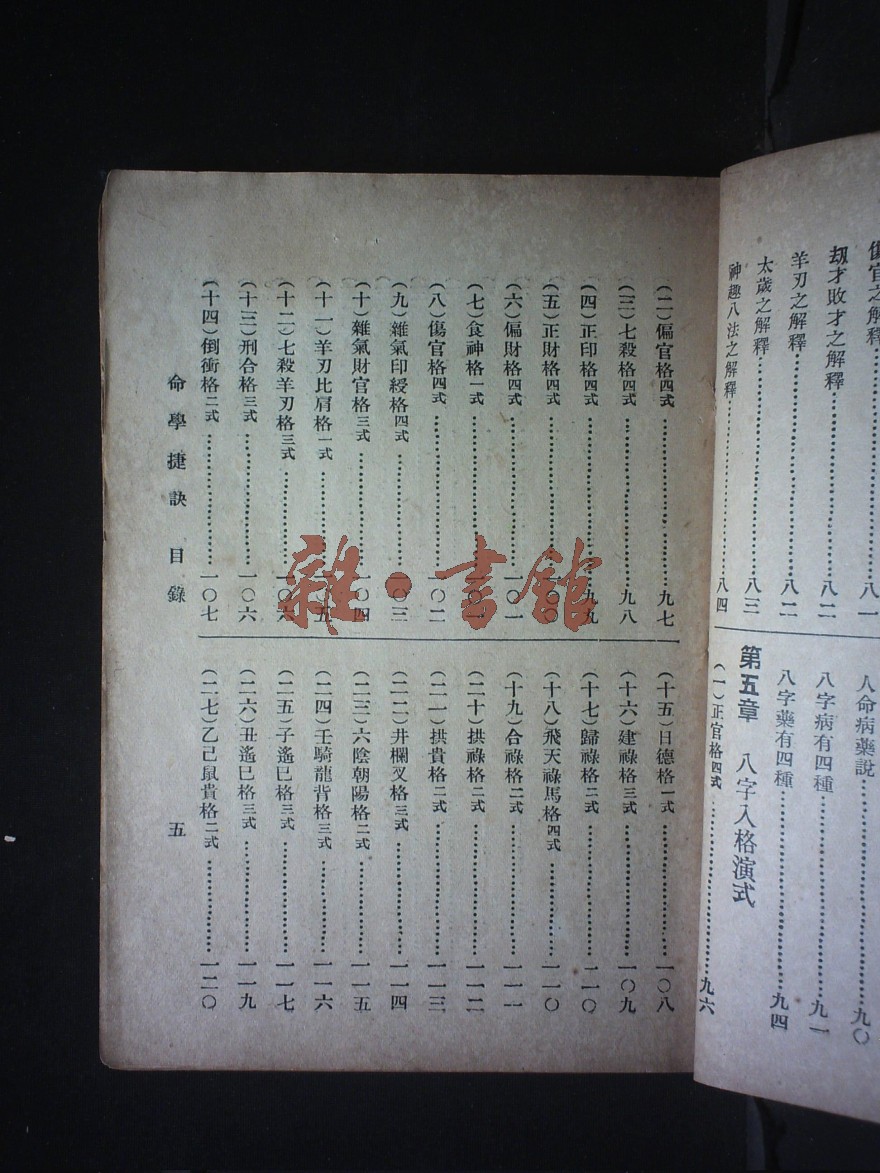 傷官之解釋……八一
刼才敗才之解釋……八二
羊刃之解釋……八二
太歲之解釋……八三
神趣八法之解釋……八四
人命病藥說……九〇
八字病有四種……九一
八字藥有四種……九四
第五章　八字入格演式
(一)正官格四式……九六
(二)偏官格四式……九七
(三)七殺格四式……九八
(四)正印格四式……九九
(五)正財格四式……一〇〇
(六)偏財格四式……一〇一
(七)食神格一式……一〇一
(八)傷官格四式……一〇二
(九)雜氣印綬格四式……一〇三
(十)雜氣財官格三式……一〇四
(十一)羊刃比肩格一式……一〇五
(十二)七殺羊刃格三式……一〇六
(十三)刑合格三式……一〇六
(十四)倒衝格二式……一〇七
(十五)日德格一式……一〇八
(十六)建祿格三式……一〇九
(十七)歸祿格二式……一一〇
(十八)飛天祿馬格四式……一一〇
(十九)合祿格二式……一一一
(二十)拱祿格二式……一一二
(二一)拱貴格二式……一一三
(二二)井欄叉格三式……一一四
(二三)六陰朝陽格二式……一一五
(二四)壬騎龍背格三式……一一六
(二五)子遙巳格三式……一一七
(二六)丑遙巳格三式……一一九
(二七)乙己鼠貴格二式……一二〇
命學捷訣　目錄　五
雜·書館